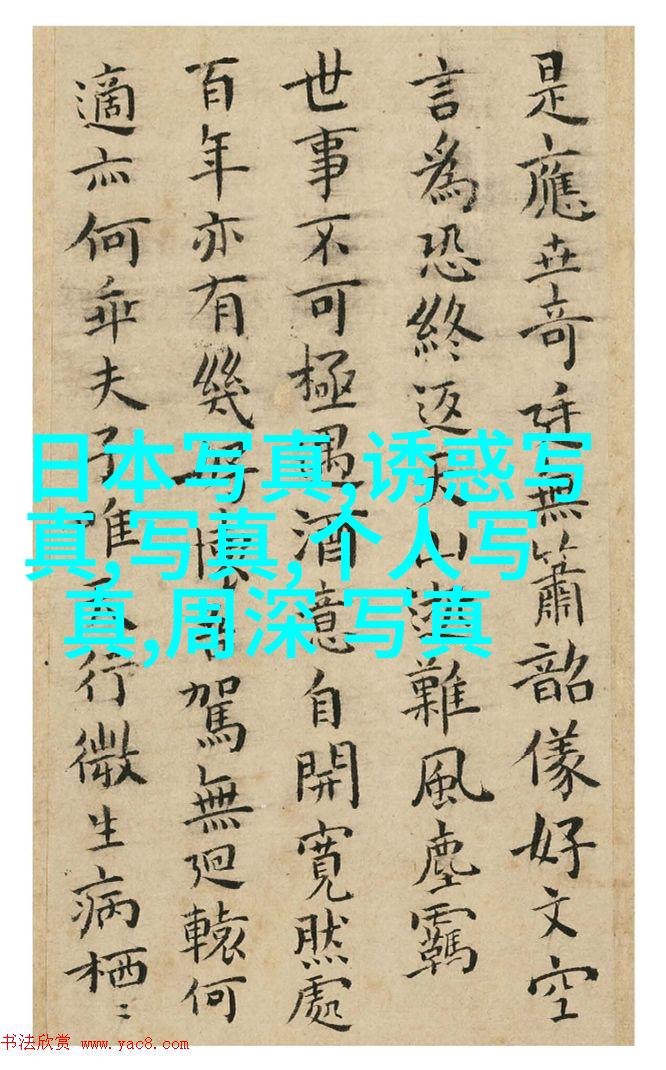 是應奇廷無簫韶儀好文空
言爲恐終返山難風塵羈
世事不可極遇酒自開寬然處
百年亦有幾駕無迴轅何
適亦何乖夫子唯行微生病栖〻
日本写真,诱惑写
真,写真,个人写
真,周深写真
书法欣赏 www.yac8.com